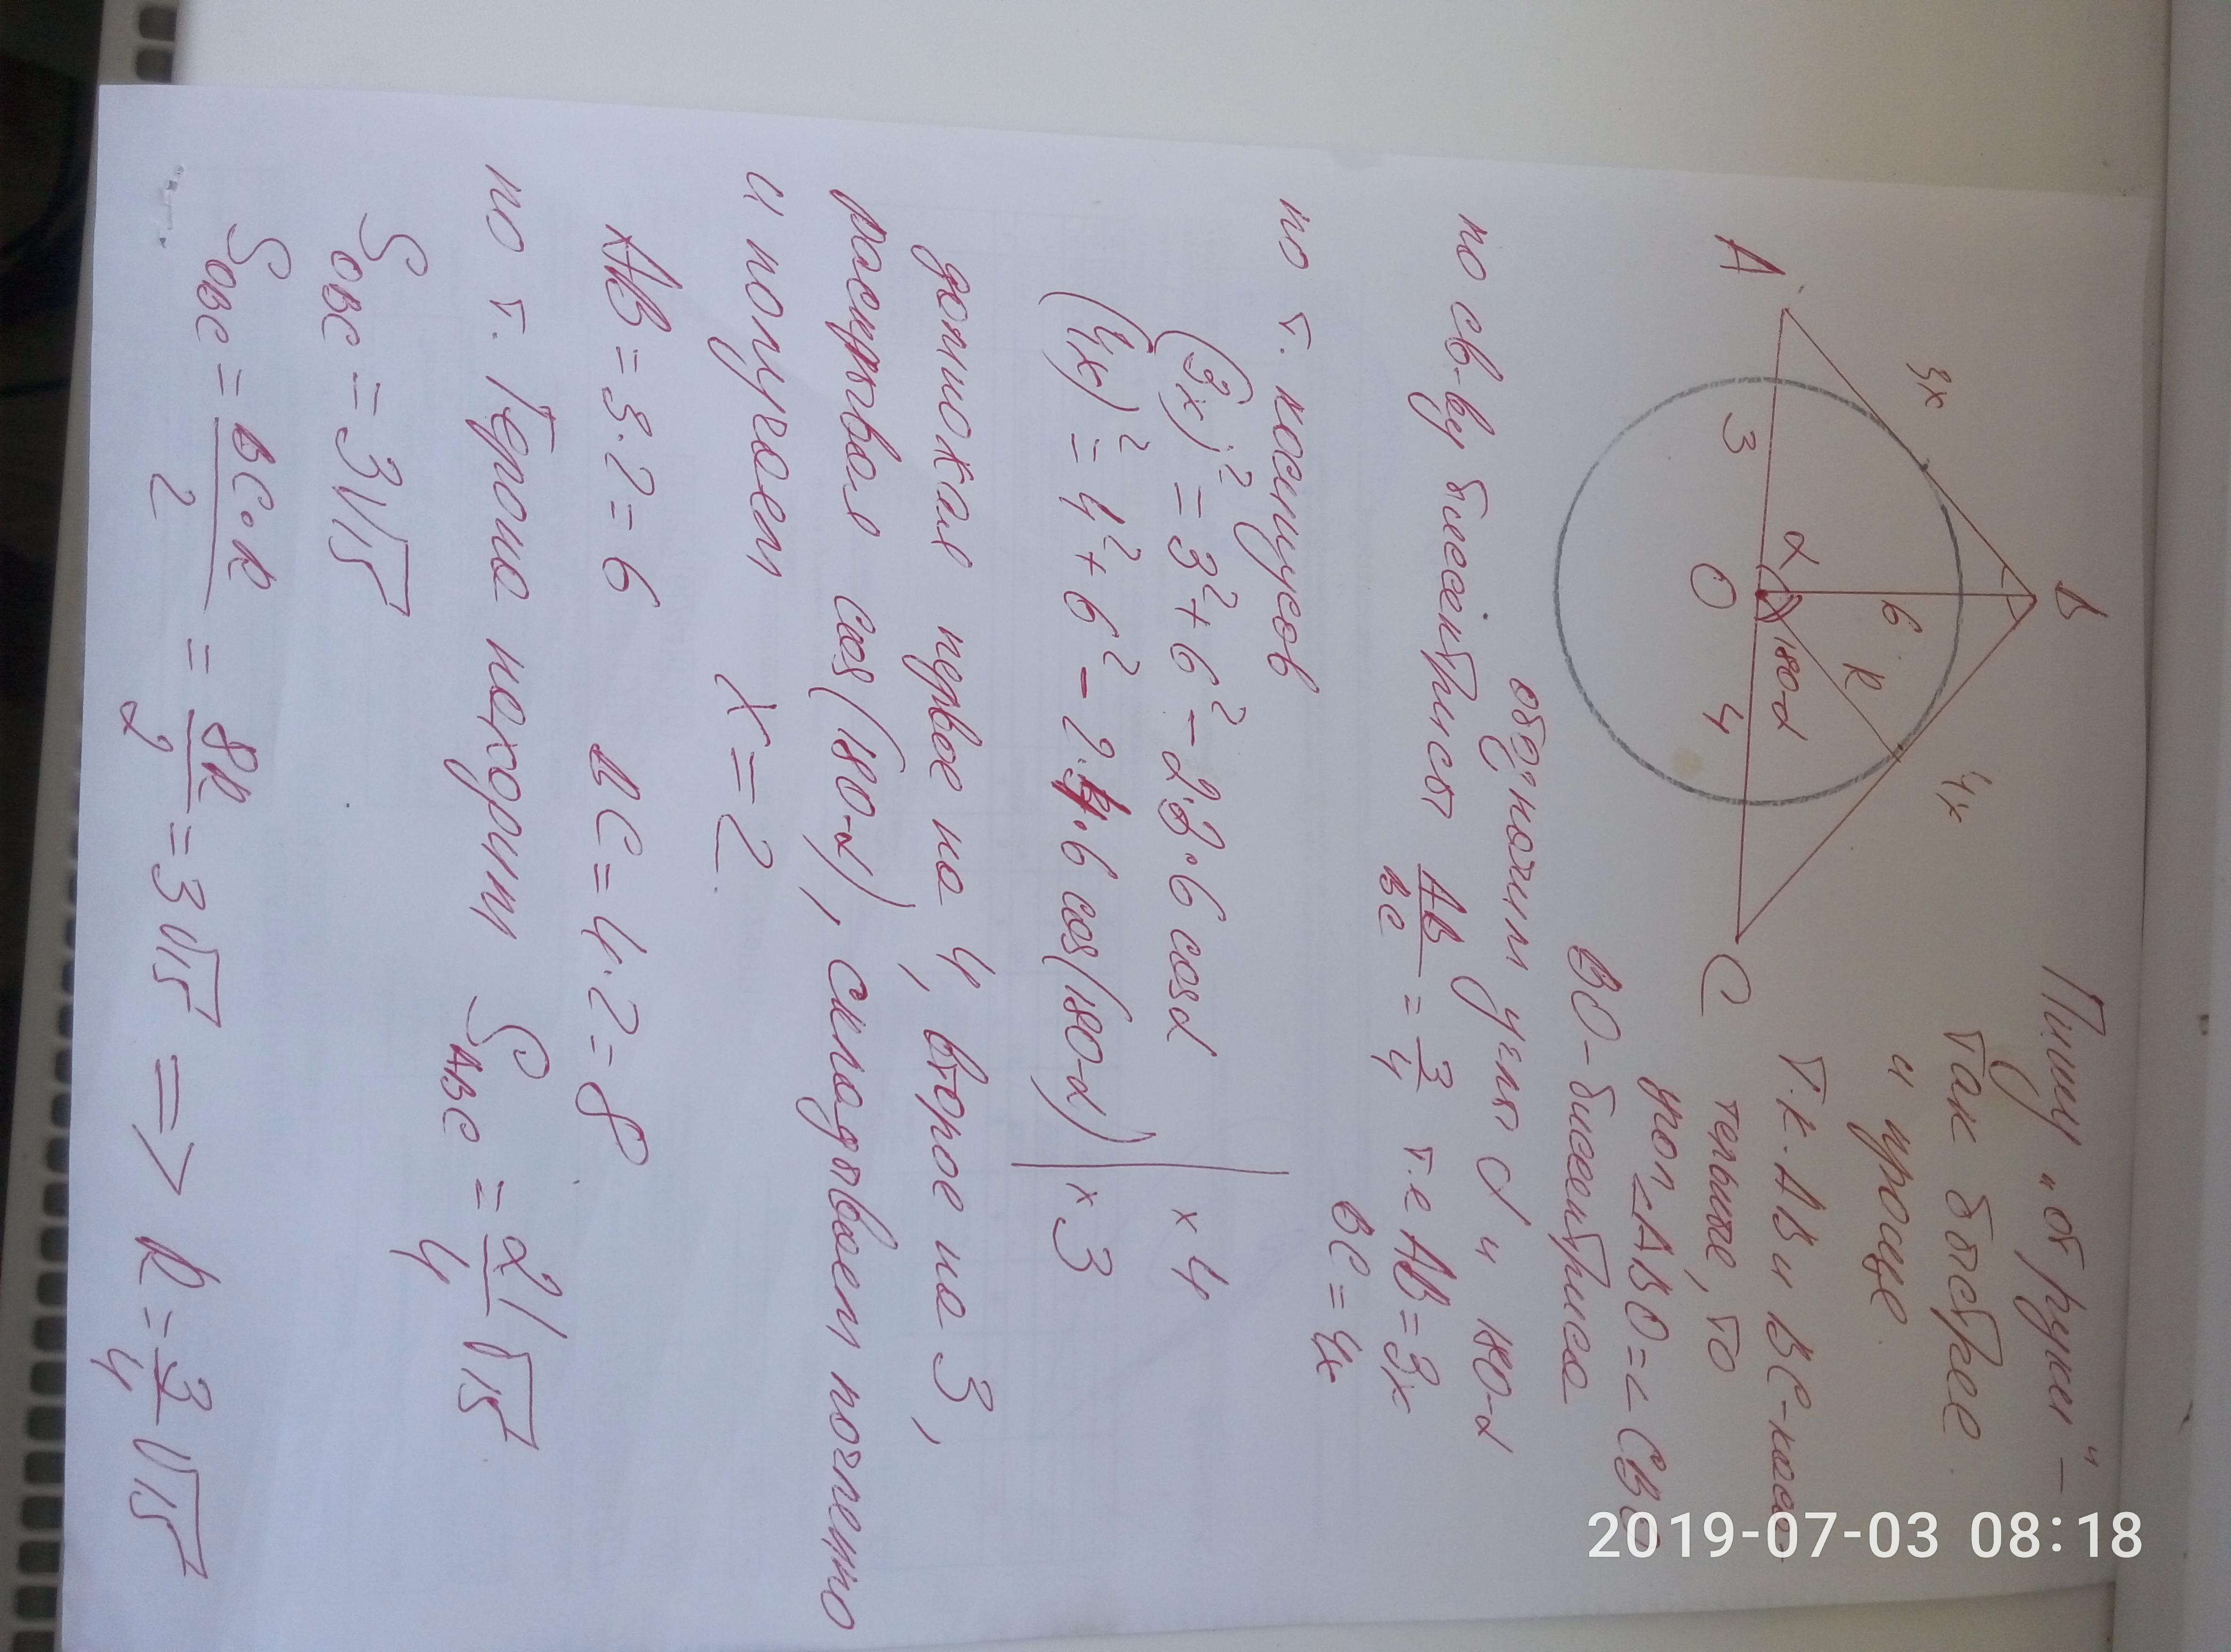 Пишу „от руки" –
так быстрее
и проще
B
3x
4x
6
R
α
180-α
A
3
O
4
C
т.к. AB и BC – каса-
тельные, то
угол ∠ABO = ∠CBO
BO – биссектриса
обозначим углы α и 180-α
по св-ву биссектрисы AB/BC = 3/4 т.е AB = 3x
BC = 4x
по т. косинусов
(3x)² = 3² + 6² – 2·3·6 cosα | ×4
(4x)² = 4² + 6² – 2·4·6 cos(180-α) | ×3
домножая первое на 4, второе на 3,
раскрывая cos(180-α), складываем почленно
и получаем x = 2
AB = 3·2 = 6 BC = 4·2 = 8
по т. Герона находим S ABC = 21/4 √15
S OBC = 3√15
S OBC = BC·R/2 = 8R/2 = 3√15 => R = 3/4 √15
2019-07-03 08:18